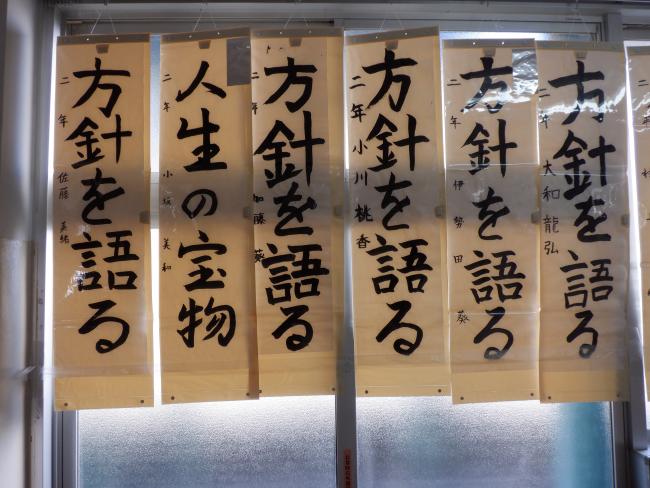 方針を語る
二年 大和龍弘
方針を語る
二年 伊勢田 葵
方針を語る
二年 小川桃香
方針を語る
二年 加藤 葵
人生の宝物
二年 小坂 美和
方針を語る
二年 佐藤